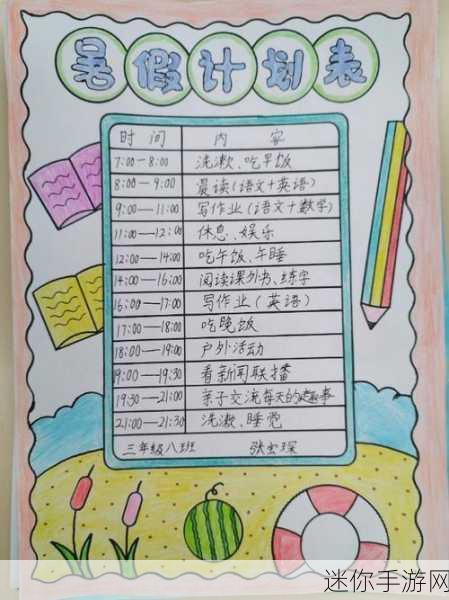 暑假计划表
时 间 内 容
7:00—8:00 洗漱、吃早饭
8:00—9:00 晨读(语文+英语)
9:00—11:00 写作业(语文+数学)
11:00—12:00 休息、娱乐
12:00—14:00 吃午饭、午睡
14:00—16:00 阅读课外书、练字
16:00—17:00 写作业(英语)
17:00—18:00 吃晚饭
18:00—19:00 户外活动
19:00—19:30 看新闻联播
19:30—21:00 亲子交流每天的趣事
21:00—21:30 洗漱、睡觉
三年级八班 张玉琛
迷你手游网